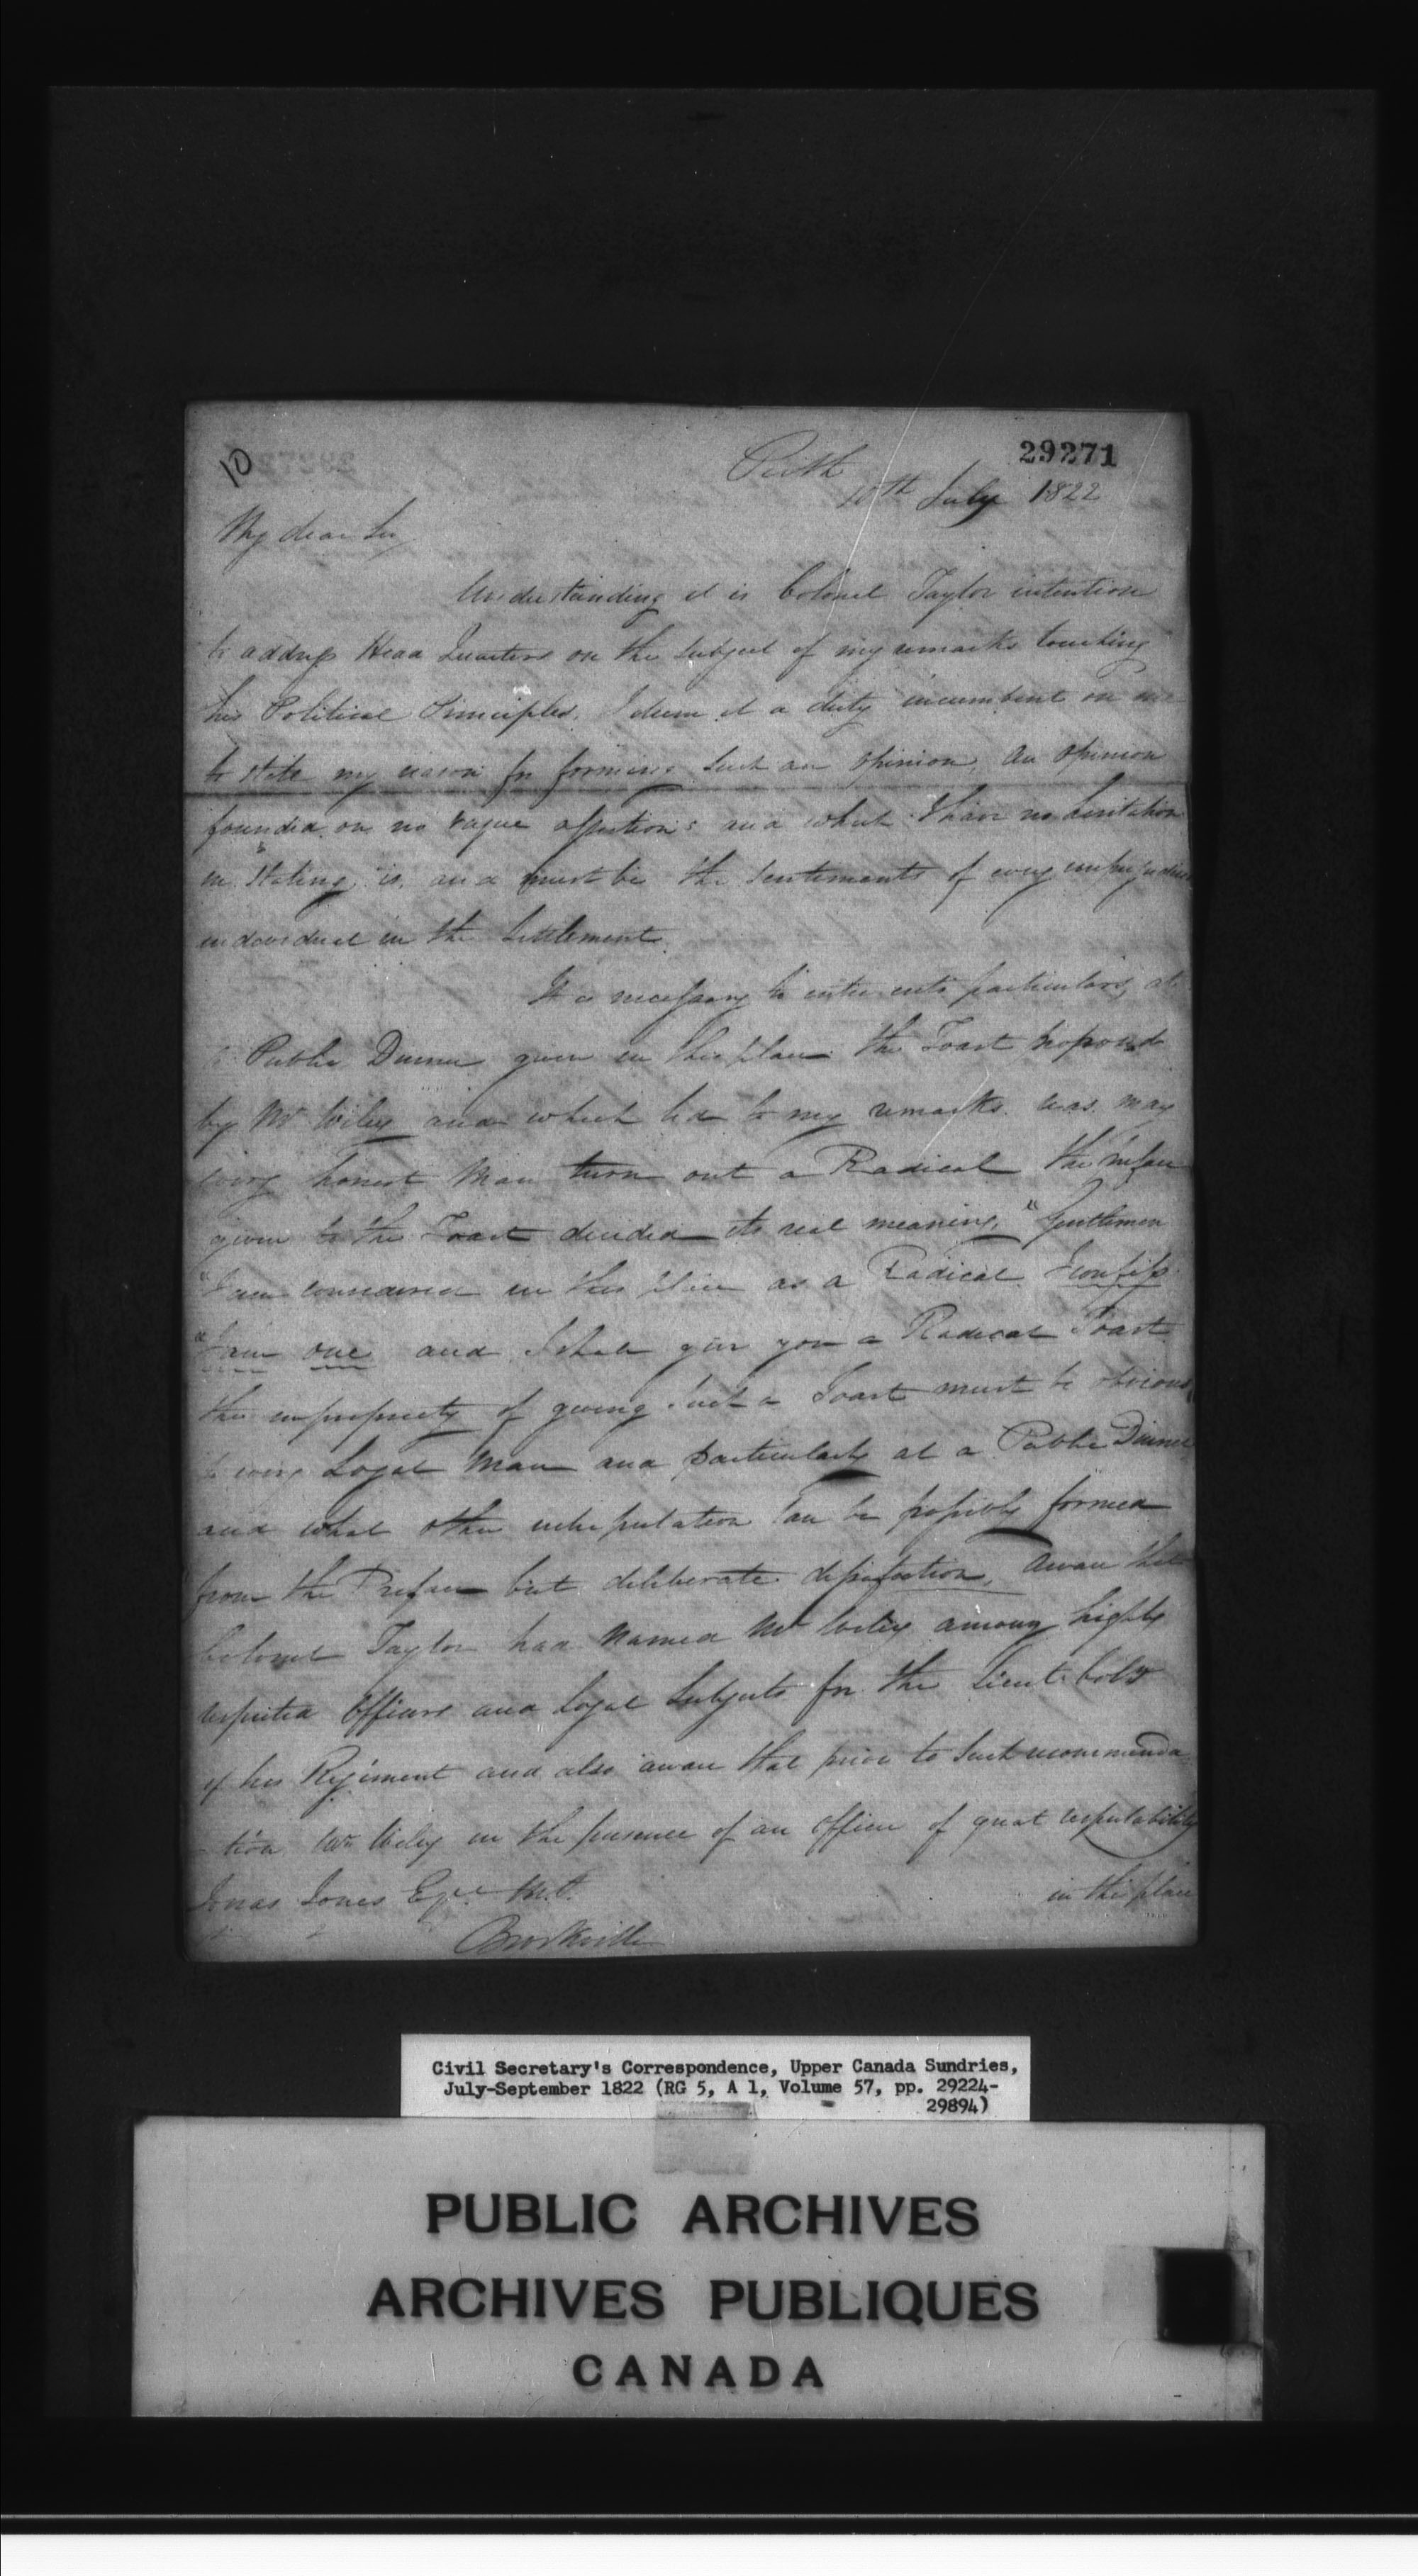 10
29271
Perth
10th July 1822
My dear Sir,
Understanding it is Colonel Taylor intention
to address Head Quarters on the subject of my remarks touching
his Political Principles. I deem it a duty incumbent on me
to state my reason for forming such an opinion, an opinion
founded on no vague assertions and what I have no hesitation
in stating is, and must be the sentiments of every unprejudiced
individual in the Settlement.
It is necessary to enter into particulars, at
a Public Dinner given in this place the Toast proposed
by Mr Wiley and which led to my remarks was may
every honest Man turn out a Radical the preface
given to the Toast decided its real meaning, "Gentlemen
"I am considered in this place as a Radical I confess
"I am one and I shall give you a Radical Toast
the impropriety of giving such a Toast must be obvious
to every Loyal Man and particularly at a Public Dinner
and what other interpretation can be possibly formed
from the Preface but deliberate aware that
Colonel Taylor had named Mr Wiley among highly
respected Officers and Loyal Subjects for the Lieut Coly
of his Regiment and also aware that prior to such recommenda-
tion Mr Wiley in the presence of an Officer of great respectability
Jonas Jones Esqre M.P.
in this place
Brockville
Civil Secretary's Correspondence, Upper Canada Sundries,
July-September 1822 (RG 5, A 1, Volume 57, pp. 29224-
29894)
PUBLIC ARCHIVES
ARCHIVES PUBLIQUES
CANADA